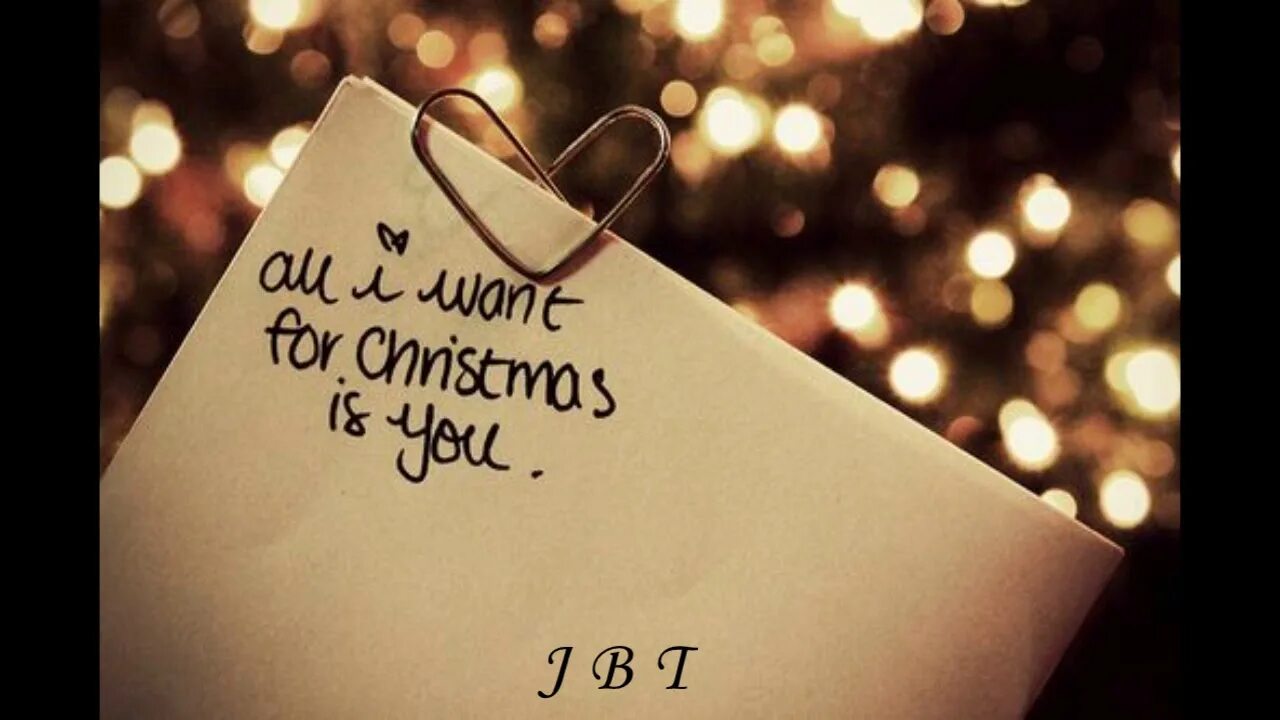 all i want
for Christmas
is you.
J B T